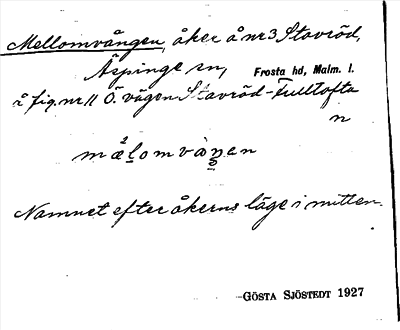 Mellomvången, åker å nr 3 Stavröd,
Äspinge sn, Frosta hd, Malm. l.
å fig. nr 11 Ö. vägen Stavröd-Fulltofta
n
Namnet efter åkerns läge i mitten.
GÖSTA SJÖSTEDT 1927